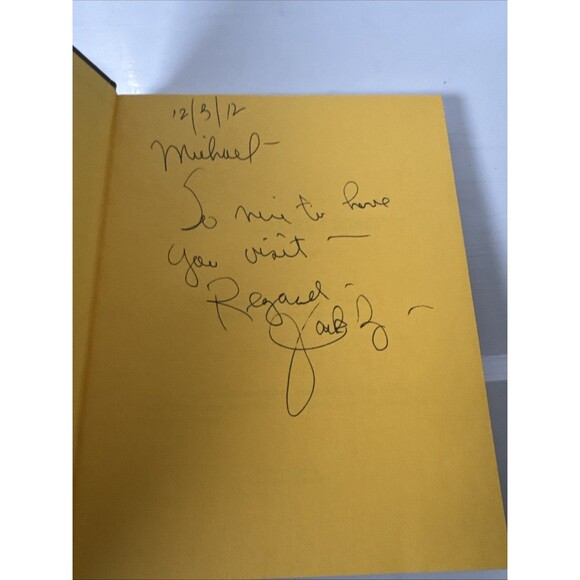 12/3/12
Michael-
So nice to have
you visit —
Regards -
Jack